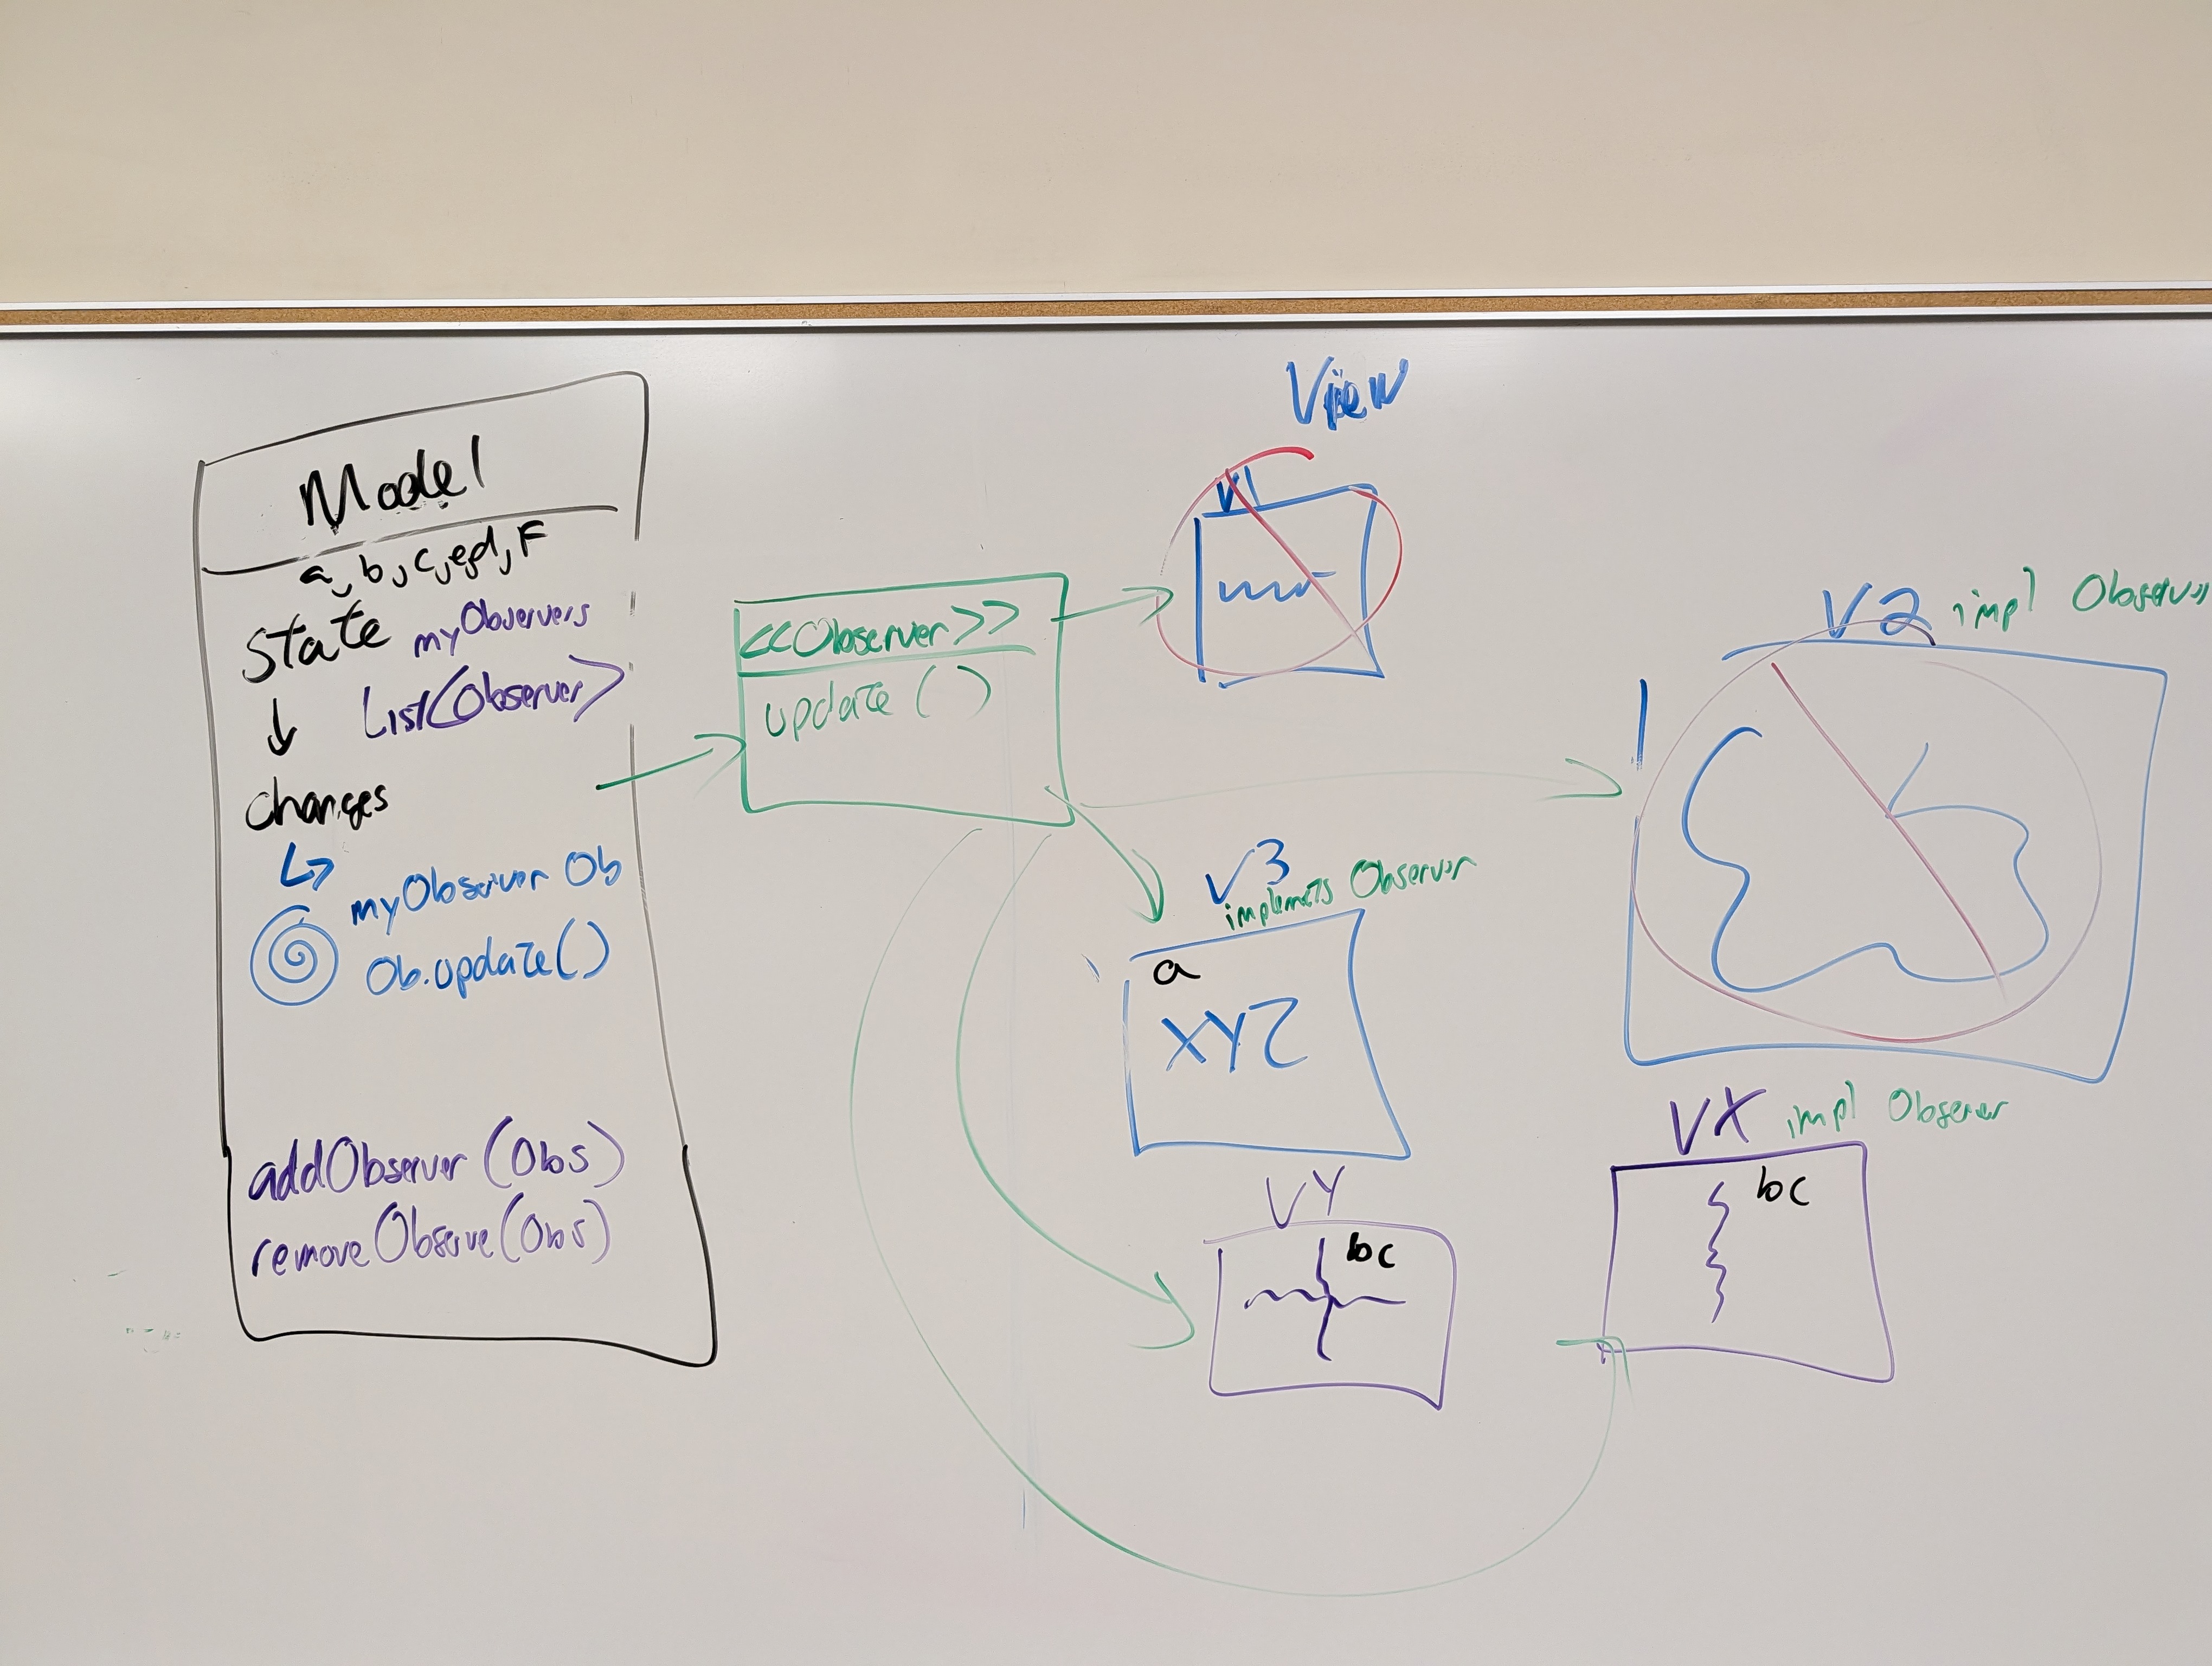 Model
a, b, c, e, d, F
State myObservers
List<Observer>
↓
changes
↳ myObserver Ob
Ob.update()
addObserver (Obs)
removeObserve(Obs)
<<Observer>>
update ()
View
V1
V2 impl Observer
V3
implements Observer
a
XYZ
VY
bc
VX impl Observer
bc